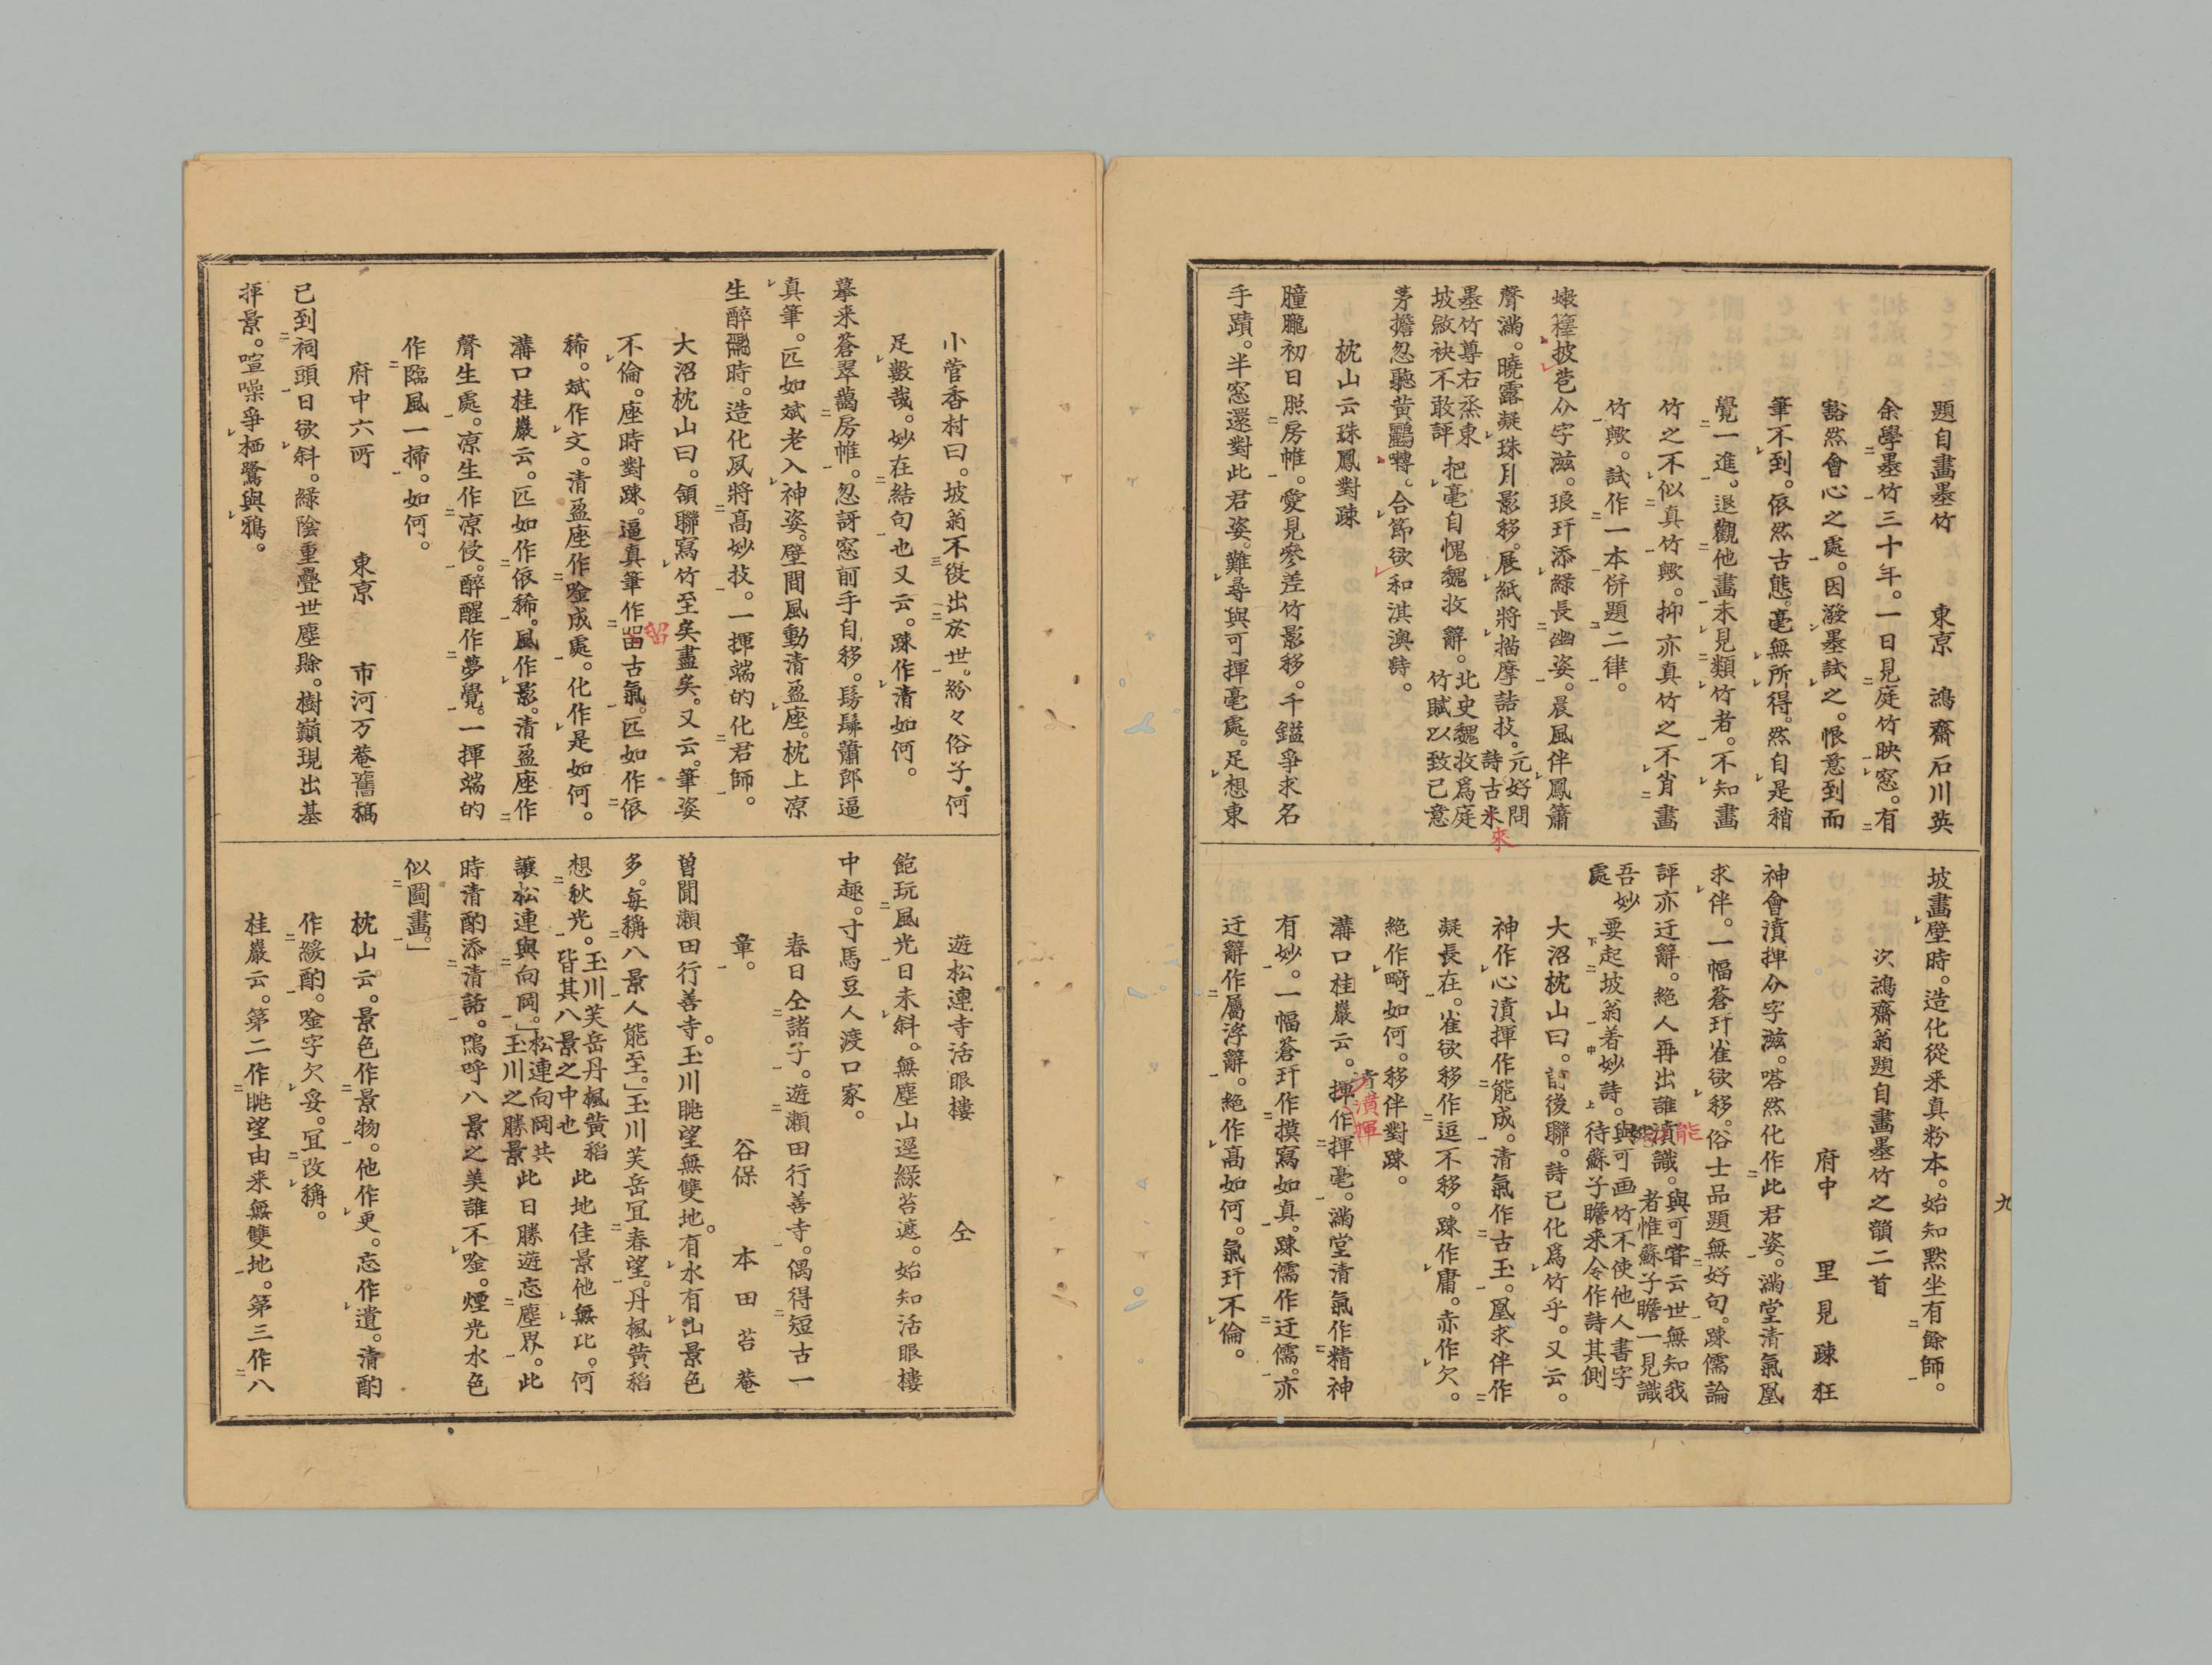 題自畫墨竹　東京　鴻齋石川英
余學墨竹三十年。一日見庭竹映窓。有
豁然會心之處。因潑墨試之。恨意到而
筆不到。依然古態。毫無所得。然自是稍
覺一進。退觀他畫未見類竹者。不知畫
竹之不似真竹歟。抑亦真竹之不肖畫
竹歟。試作一本併題二律。
嫩籜披苞分字滋。琅玕添緑長幽姿。晨風伴鳳簫
聲滿。曉露凝珠月影移。展紙將描摩詰技。元好問詩古来
墨竹尊右丞東坡斂袂不敢評 把毫自愧魏收辭。北史魏收爲庭竹賦以致己意
茅擔忽聽黄鸝囀。合節欲和淇澳詩。
枕山云珠鳳對踈
朣朧初日照房帷。愛見參差竹影移。千鎰爭求名
手蹟。半窓還對此君姿。難尋與可揮毫處。足想東
坡畫壁時。造化從来真粉本。始知黙坐有餘師。
次鴻齋翁題自畫墨竹之韻二首
府中　里見踈狂
神會漬揮分字滋。嗒然化作此君姿。滿堂清氣凰
求伴。一幅蒼玕雀欲移。俗士品題無好句。踈儒論
評亦迂辭。絶人再出誰漬識。與可嘗云世無知我者惟蘇子瞻一見識
吾妙處 要起坡翁着妙詩。與可画竹不使他人書字待蘇子瞻来令作詩其側
大沼枕山曰。前後聯。詩已化爲竹乎。又云。
神作心漬揮作能成。清氣作古玉。凰求伴作
凝長在。雀欲移作逗不移。踈作庸。赤作欠。
絶作畸如何。移伴對踈。
溝口桂巖云。揮作揮毫。滿堂清氣作精神
有妙。一幅蒼玕作摸寫如真。踈儒作迂儒。亦
迂辭作屬浮辭。絶作高如何。氣玕不倫。
能
來
漬揮
九
小菅香村曰。坡翁不復出於世。紛々俗子。何
足數哉。妙在結句也又云。踈作清如何。
摹来蒼翠藹房帷。忽訝窓前手自移。髣髴蕭郎逼
真筆。匹如斌老入神姿。壁間風動清盈座。枕上凉
生醉醒時。造化夙將高妙技。一揮端的化君師。
大沼枕山曰。領聯寫竹至矣盡矣。又云。筆姿
不倫。座時對踈。逼真筆作留古氣。匹如作依
稀。斌作文。清盈座作唫成處。化作是如何。
溝口桂巖云。匹如作依稀。風作影。清盈座作
聲生處。凉生作凉侵。醉醒作夢覺。一揮端的
作臨風一掃。如何。
留
府中六所　東京　市河万菴舊稿
已到祠頭日欲斜。緑陰重疊世塵賒。樹巓現出碁
抨景。喧噪爭栖鷺與鴉。
遊松連寺活眼樓　仝
飽玩風光日未斜。無塵山逕緑苔遮。始知活眼樓
中趣。寸馬豆人渡口家。
春日仝諸子。遊瀬田行善寺。偶得短古一
章。　谷保　本田苔菴
曽聞瀬田行善寺。玉川眺望無雙地。有水有山景色
多。毎稱八景人能至。」玉川芙岳宜春望。丹楓黄稻
想秋光。玉川芙岳丹楓黄稻皆其八景之中也 此地佳景他無比。何
讓松連與向岡。」松連向岡共玉川之勝景 此日勝遊忘塵界。此
時清酌添清話。嗚呼八景之美誰不唫。煙光水色
似圖畫。」
枕山云。景色作景物。他作更。忘作遺。清酌
作緩酌。唫字欠妥。宜改稱。
桂巖云。第二作眺望由来無雙地。第三作八